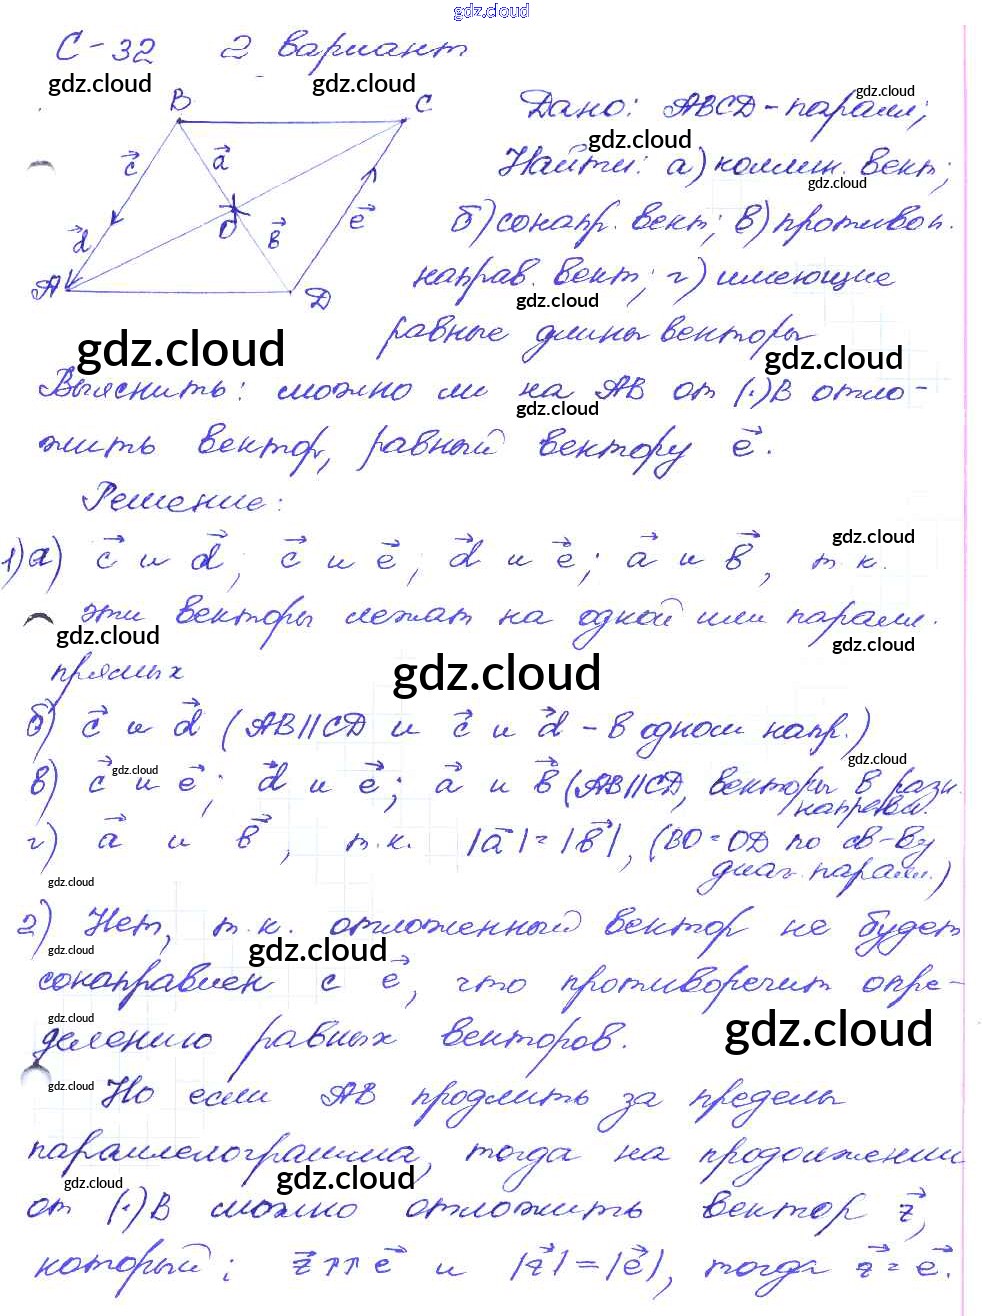 gdz.cloud
С-32 2 вариант
gdz.cloud gdz.cloud gdz.cloud
B C Дано: ABCD-паралл;
gdz.cloud
c⃗ a⃗ Найти: а) коллин. вект;
gdz.cloud
d⃗ O b⃗ e⃗ б) сонапр. вект; в) противоп.
A D направ. вект; г) имеющие
gdz.cloud
равные длины векторы
gdz.cloud gdz.cloud
Выяснить: можно ли на AB от (·)B отло-
gdz.cloud
жить вектор, равный вектору e⃗.
Решение:
gdz.cloud
1)а) c⃗ и d⃗, c⃗ и e⃗; d⃗ и e⃗; a⃗ и b⃗, т.к.
эти векторы лежат на одной или паралл.
gdz.cloud gdz.cloud
прямых gdz.cloud
б) c⃗ и d⃗ (AB||CD и c⃗ и d⃗ - в одном напр.)
gdz.cloud gdz.cloud
в) c⃗ и e⃗; d⃗ и e⃗; a⃗ и b⃗ (AB||CD, векторы в разн.
направл.
г) a⃗ и b⃗, т.к. |a⃗|=|b⃗|, (BO=OD по св-ву
диаг. паралл.)
gdz.cloud
2) Нет, т.к. отложенный вектор не будет
gdz.cloud gdz.cloud
сонаправлен с e⃗, что противоречит опре-
gdz.cloud gdz.cloud
делению равных векторов.
gdz.cloud
Но если AB продлить за пределы
параллелограмма, тогда на продолжении
gdz.cloud gdz.cloud
от (·)B можно отложить вектор z⃗,
который: z⃗↑↑e⃗ и |z⃗|=|e⃗|, тогда z⃗=e⃗.